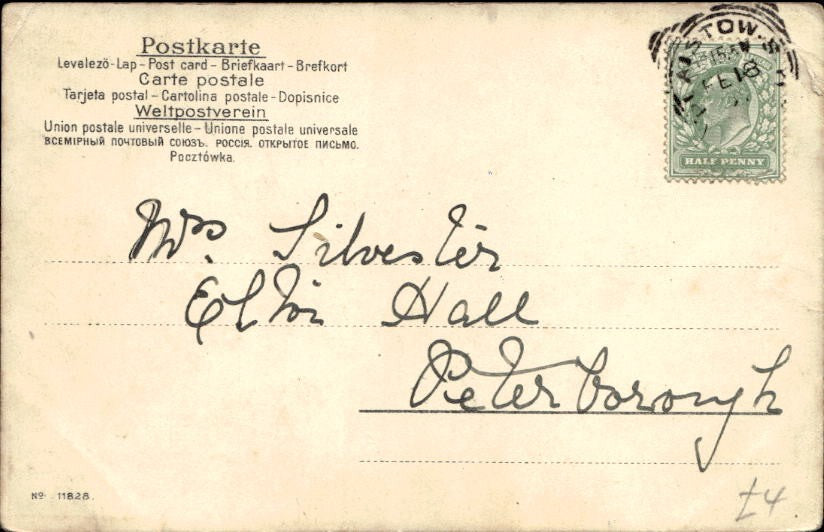 Postkarte
Levelezö-Lap - Post card - Briefkaart - Brefkort
Carte postale
Tarjeta postal - Cartolina postale - Dopisnice
Weltpostverein
Union postale universelle - Unione postale universale
ВСЕМІРНЫЙ ПОЧТОВЫЙ СОЮЗЪ. РОССІЯ. ОТКРЫТОЕ ПИСЬМО.
Pocztówka.
HALF PENNY
Mrs. Silvester
Elton Hall
Peterborough
No. 11828.
£4